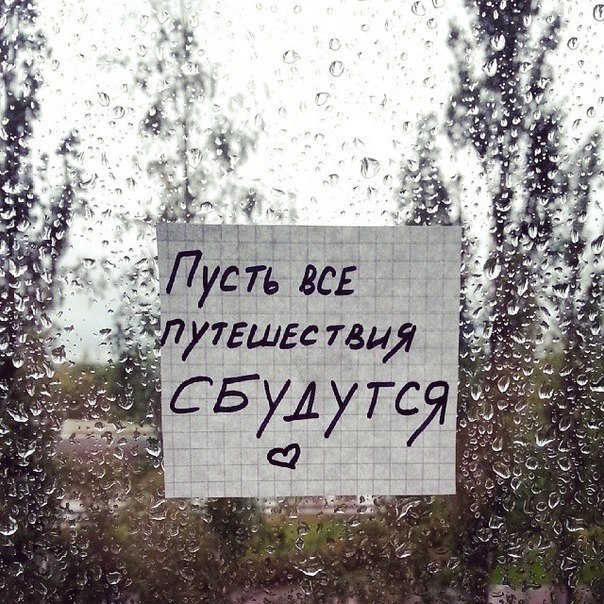 Пусть все
путешествия
СБУДУТСЯ